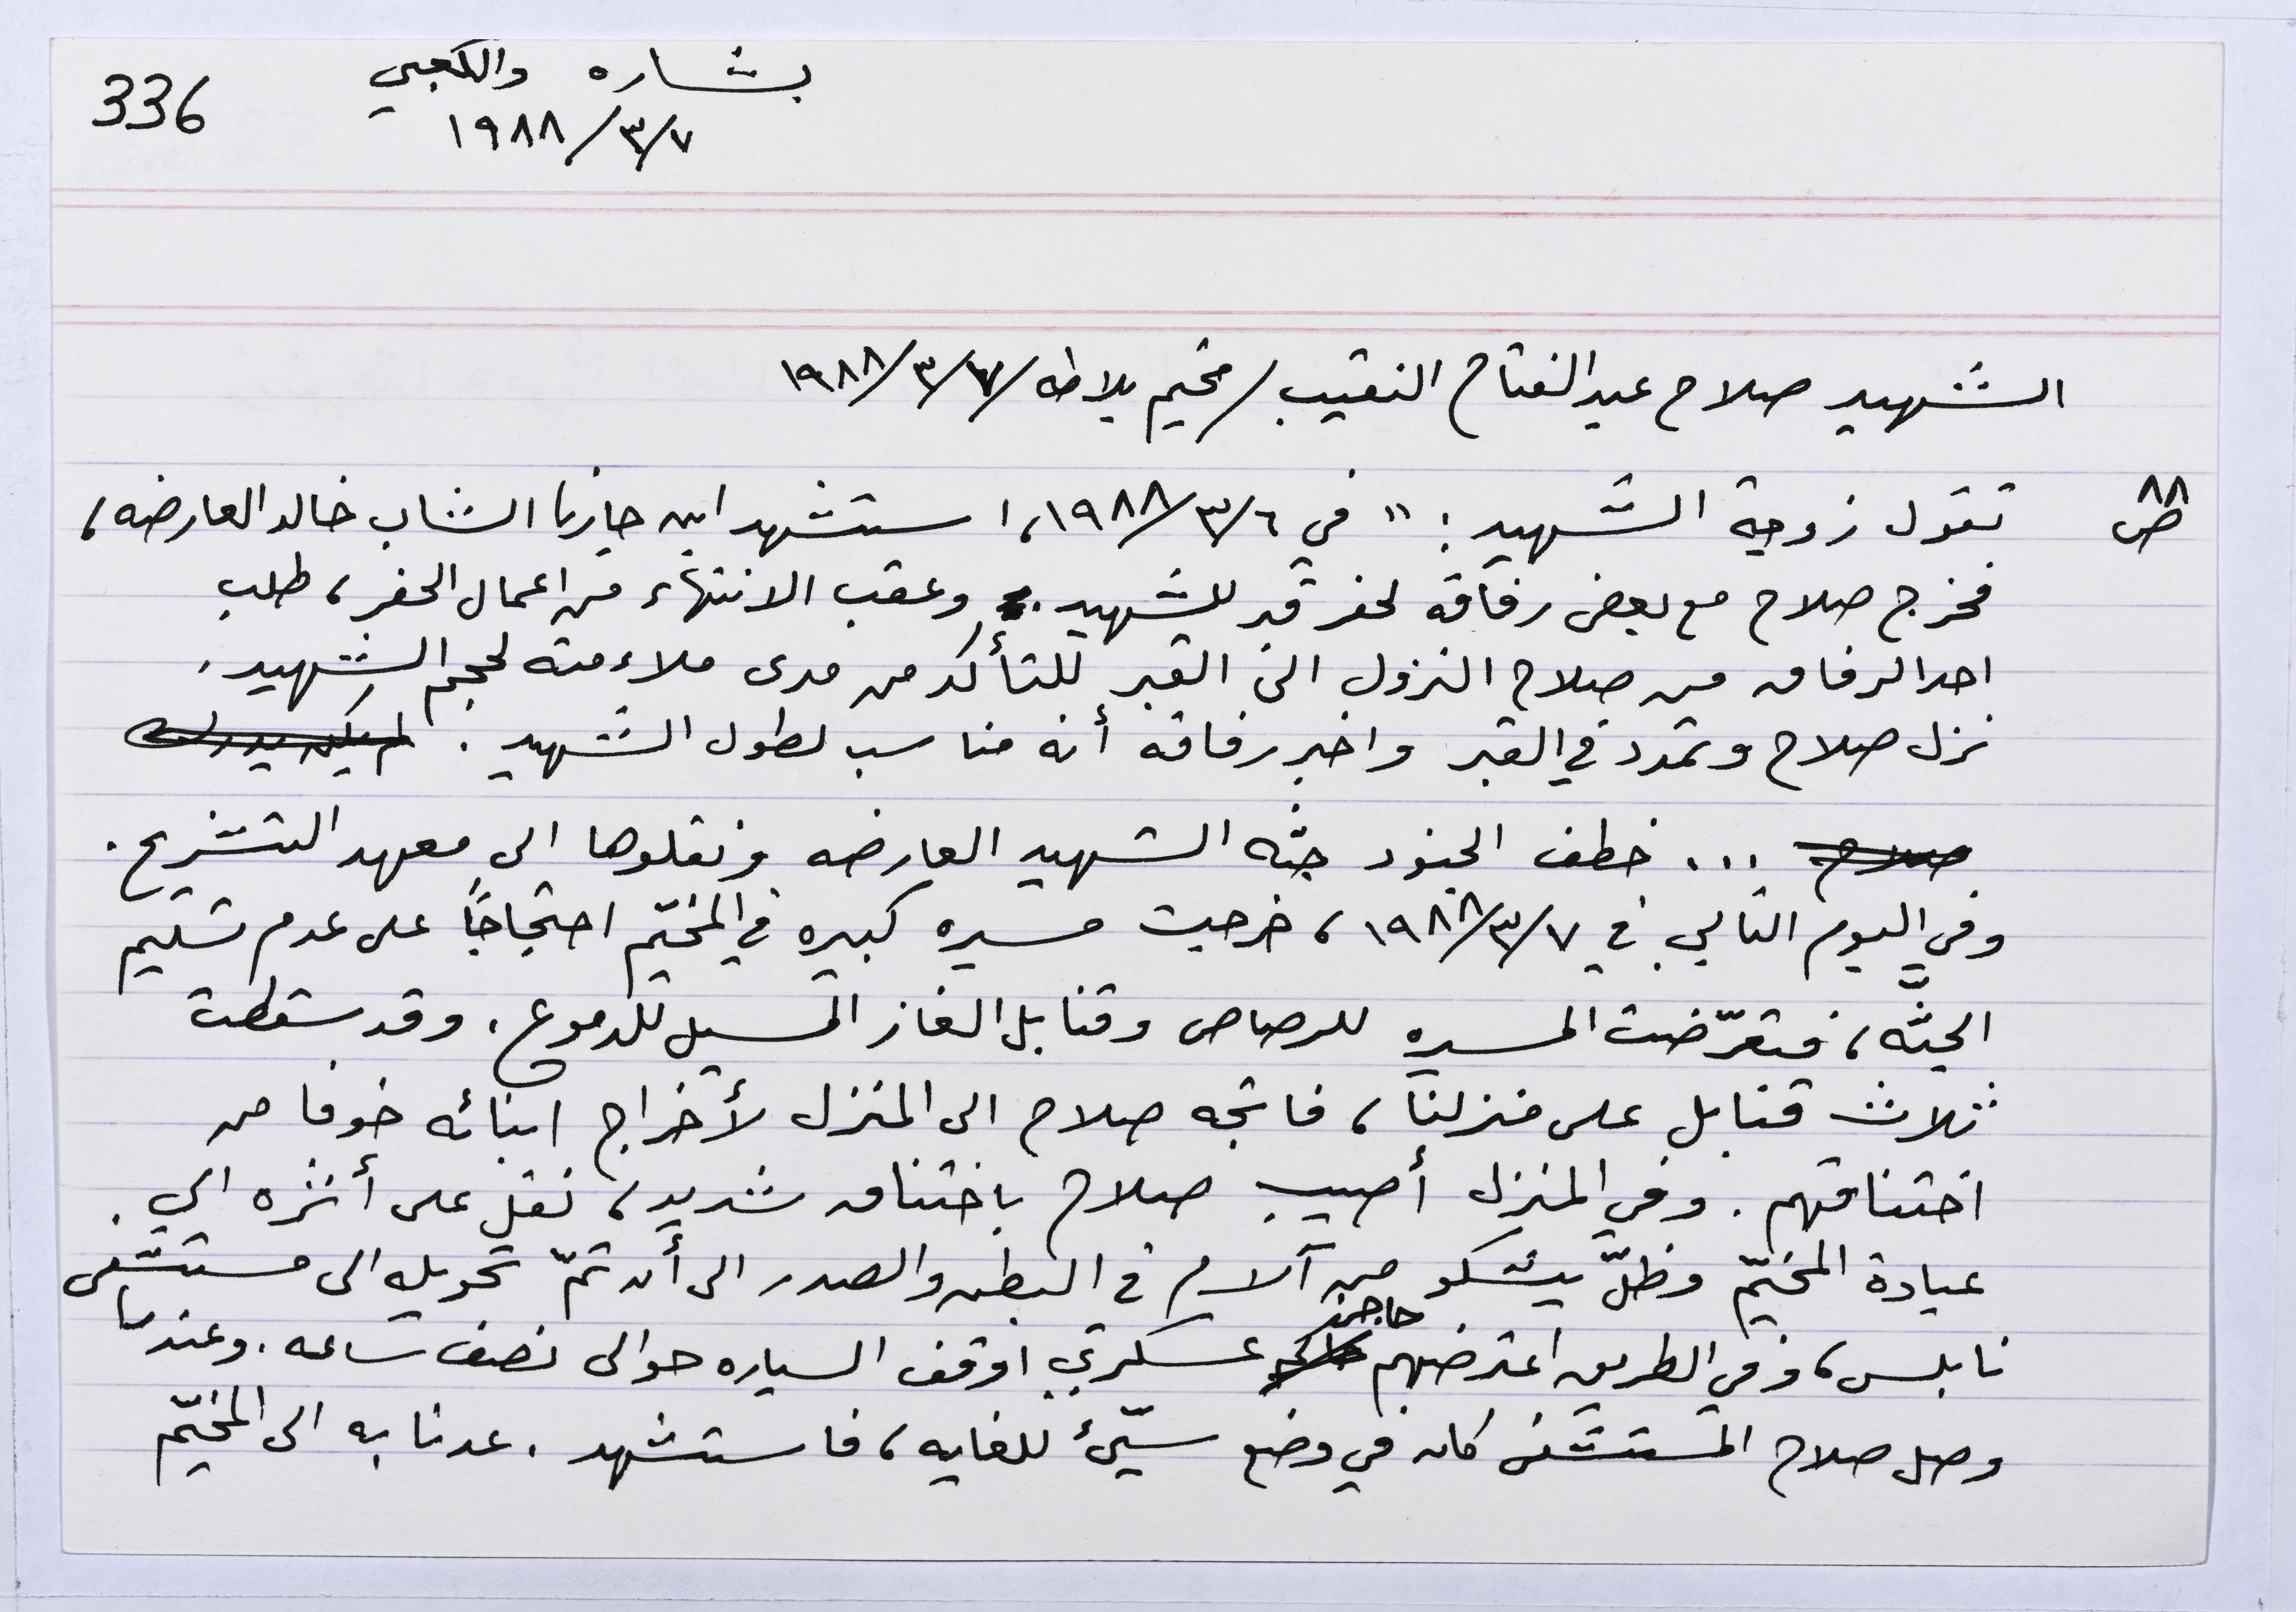 336
بشاره والكعبي
١٩٨٨/٣/٧
الشهيد صلاح عبد الفتاح النقيب / مخيم بلاطه / ١٩٨٨/٣/٧
ص ٨٨
تقول زوجة الشهيد: "في ١٩٨٨/٣/٦، استشهد ابن جارنا الشاب خالد العارضه،
فخرج صلاح مع بعض رفاقه لحفر قبر للشهيد. وعقب الانتهاء من اعمال الحفر، طلب
احد الرفاق من صلاح النزول الى القبر للتأكد من مدى ملاءمته لحجم الشهيد.
نزل صلاح وتمدد في القبر واخبر رفاقه أنه مناسب لطول الشهيد. لم يكن يدرك
صلاح ... خطف الجنود جثه الشهيد العارضه ونقلوها الى معهد التشريح.
وفي اليوم التالي في ١٩٨٨/٣/٧، خرجت مسيره كبيره في المخيّم احتجاجاً على عدم تسليم
الجثّه، فتعرّضت المسيره للرصاص وقنابل الغاز المسيل للدموع. وقد سقطت
ثلاث قنابل على منزلنا، فاتجه صلاح الى المنزل لأخراج ابنائه خوفا من
اختناقهم. وفي المنزل أصيب صلاح باختناق شديد، نقل على أثره الى
عيادة المخيّم وظلّ يشكو من آلام في البطن والصدر الى أن تمّ تحويله الى مستشفى
نابلس، وفي الطريق اعترضهم حاجز عسكري اوقف السياره حوالى نصف ساعه. وعندما
وصل صلاح المستشفى كان في وضع سيّئ للغايه، فاستشهد. عدنا به الى المخيّم